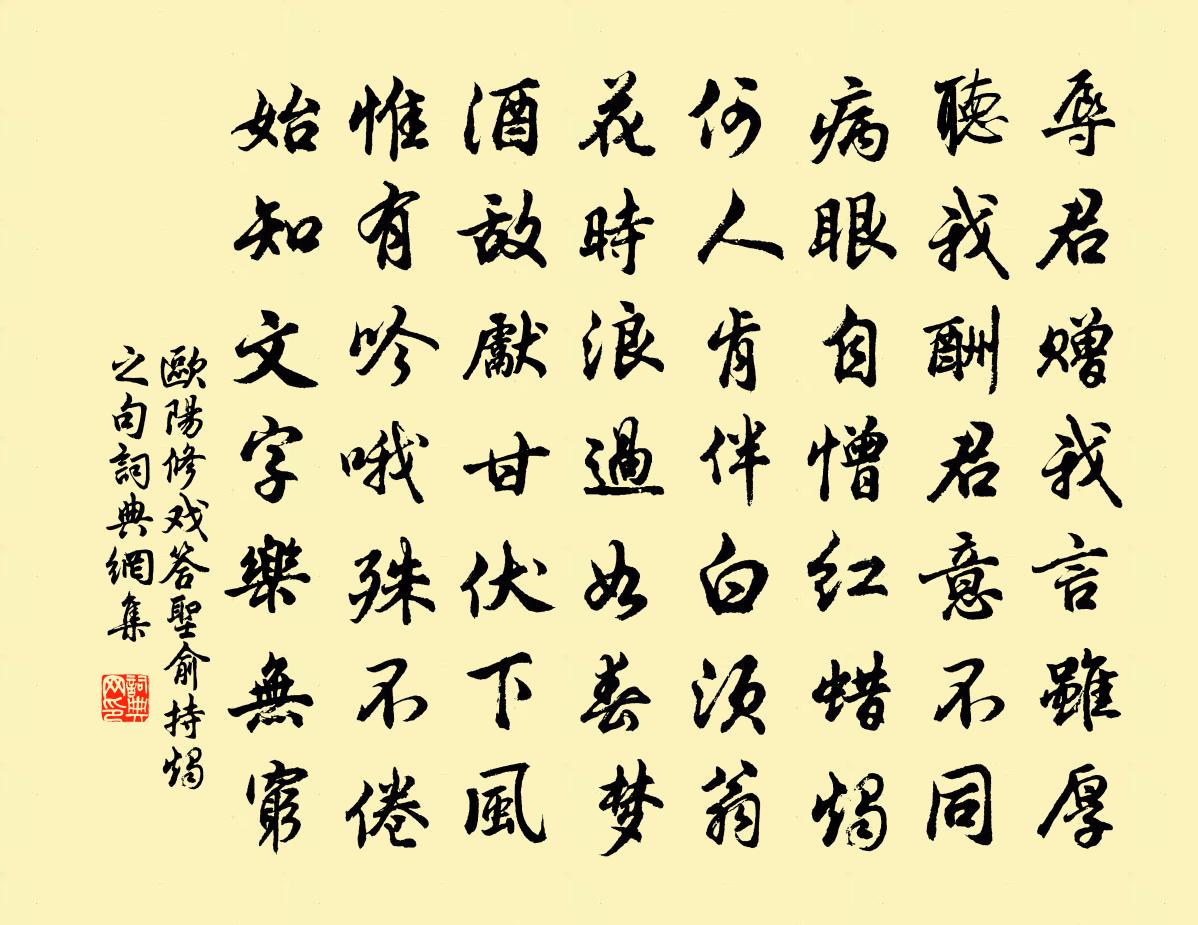 辱君赠我言雖厚
聽我酬君意不同
病眼自憎红蜡燭
何人肯伴白须翁
花時浪過如春梦
酒敌獻甘伏下風
惟有吟哦殊不倦
始知文字樂無窮
歐陽修戏答聖俞持燭
之句詞典網集
詞典
网印